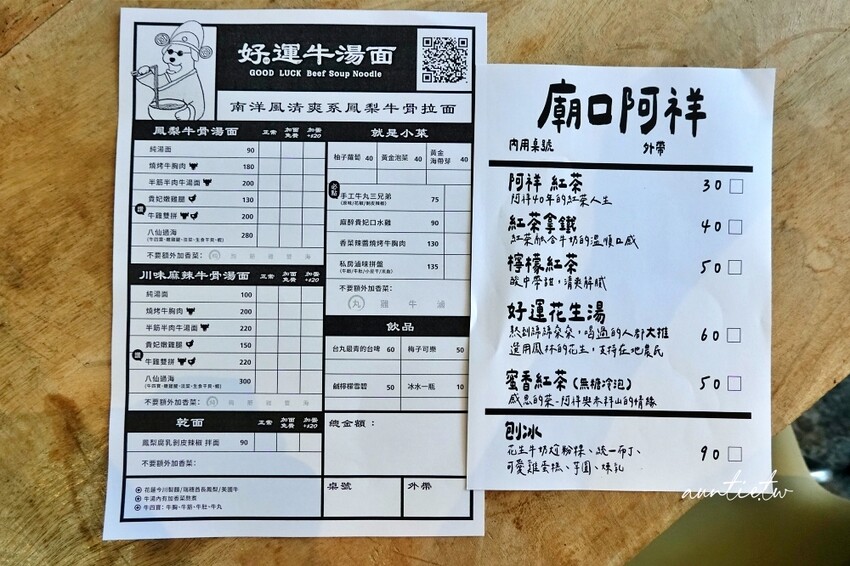 好運牛湯面
GOOD LUCK Beef Soup Noodle
南洋風清爽系鳳梨牛骨拉面
鳳梨牛骨湯面 正常 加面免費 加面+$20
純湯面 90
燒烤牛胸肉 180
半筋半肉牛湯面 200
貴妃嫩雞腿 130
牛雞雙拼 200
八仙過海 280
不要額外加香菜：
川味麻辣牛骨湯面 正常 加面免費 加面+$20
純湯面 100
燒烤牛胸肉 200
半筋半肉牛湯面 220
貴妃嫩雞腿 150
牛雞雙拼 220
八仙過海 300
不要額外加香菜：
乾面 正常 加面免費 加面+$20
鳳梨腐乳剝皮辣椒 拌面 90
不要額外加香菜：
花蓮今川製麵/瑞穗酋長鳳梨/美國牛
牛湯內有加香菜熬煮
牛四寶：牛胸、牛筋、牛肚、牛丸
就是小菜
柚子蘿蔔 40 黃金泡菜 40 黃金海帶芽 40
必點
手工牛丸三兄弟 75
麻醉貴妃口水雞 90
香菜辣醬燒烤牛胸肉 130
私房滷味拼盤 135
不要額外加香菜：
丸 雞 牛 滷
飲品
台丸最青的台啤 60 梅子可樂 50
鹹檸檬雪碧 50 冰水一瓶 10
總金額：
桌號 外帶
廟口阿祥
內用桌號 外帶
阿祥 紅茶 30
阿祥40年的紅茶人生
紅茶拿鐵 40
紅茶融合牛奶的溫順口感
檸檬紅茶 50
酸中帶甜，清爽解膩
好運花生湯 60
熬到綿綿朵朵，喝過的人都大推
選用鳳林的花生，支持在地農民
蜜香紅茶(無糖冷泡) 50
感恩的茶-阿祥與赤科山的情緣
刨冰 90
花生牛奶冰粉粿、統一布丁、
可愛雞蛋糕、芋圓、煉乳
auntie.tw